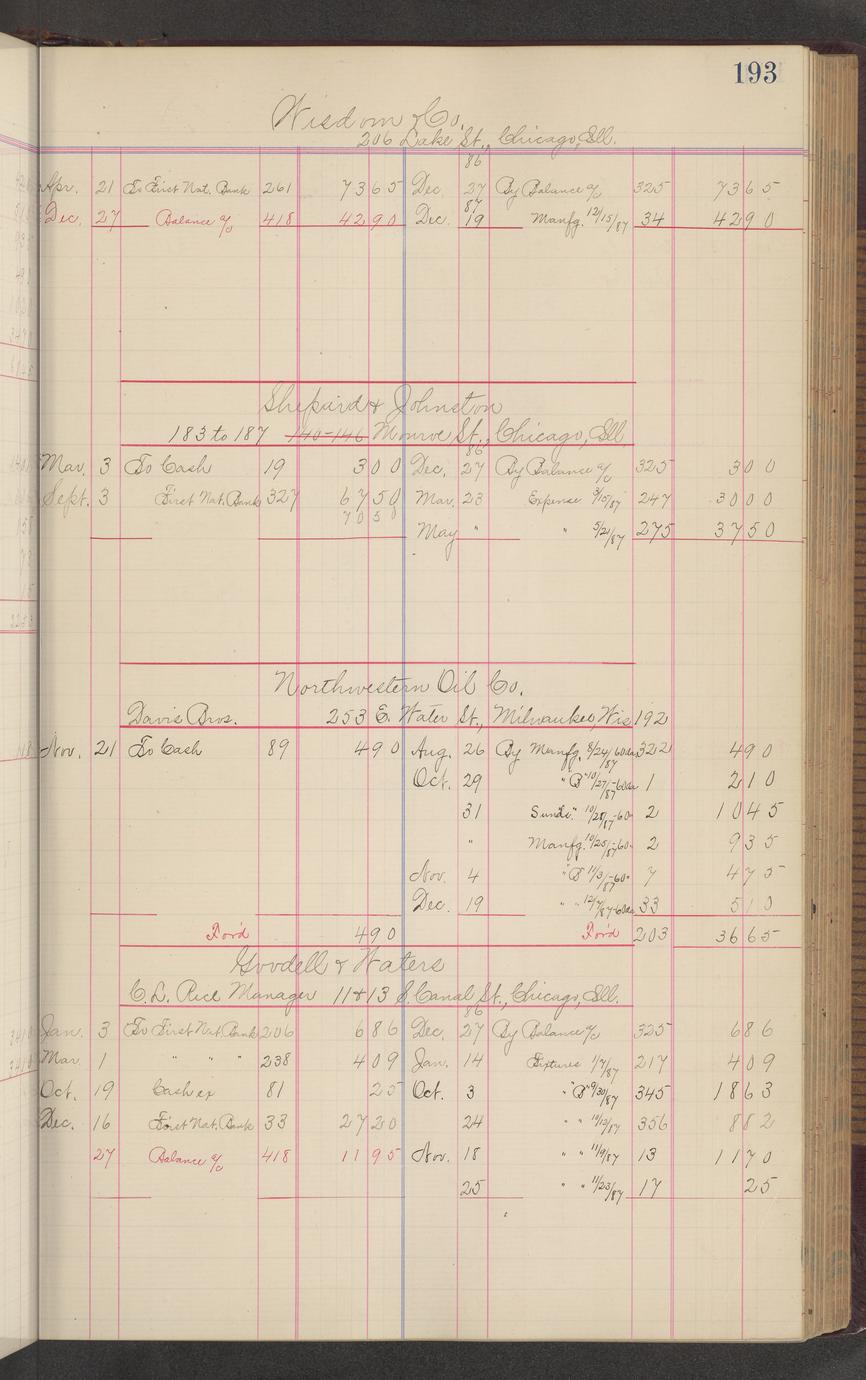 193
Wisdom & Co.
206 Lake St., Chicago, Ill.
86
Apr. 21 To First Nat. Bank 261 7365 Dec. 27 By Balance a/c 325 7365
87
Dec. 27 Balance a/c 418 4290 Dec. 19 Manfg. 12/15/87 34 4290
Shepard & Johnston
183 to 187 140-146 Monroe St., Chicago, Ill.
86
Mar. 3 To Cash 19 300 Dec. 27 By Balance a/c 325 300
Sept. 3 First Nat. Bank 327 6750 Mar. 23 Expense 3/15/87 247 3000
7050
May " " 5/21/87 275 3750
Northwestern Oil Co.
Davis Bros. 253 E. Water St., Milwaukee, Wis 192
Nov. 21 To Cash 89 490 Aug. 26 By Manfg. 8/24/87 60da 322 490
Oct. 29 " B" 10/27/87-60da 1 210
31 Sundi." 10/28/87-60" 2 1045
" Manfg. 10/25/87-60" 2 935
Nov. 4 "B" 11/3/87-60" 7 475
Dec. 19 " " 12/7/87-60da 33 510
For'd 490 For'd 203 3665
Goodell & Waters
C. L. Rice Manager 11 & 13 S. Canal St., Chicago, Ill.
86
Jan. 3 To First Nat. Bank 206 686 Dec. 27 By Balance a/c 325 686
Mar 1 " " " 238 409 Jan. 14 Fixtures 1/7/87 217 409
Oct. 19 Cash ex 81 25 Oct. 3 "B" 9/30/87 345 1863
Dec. 16 First Nat. Bank 33 2720 24 " " 10/12/87 356 882
27 Balance a/c 418 1195 Nov. 18 " " 11/9/87 13 1170
25 " " 11/23/87 17 25